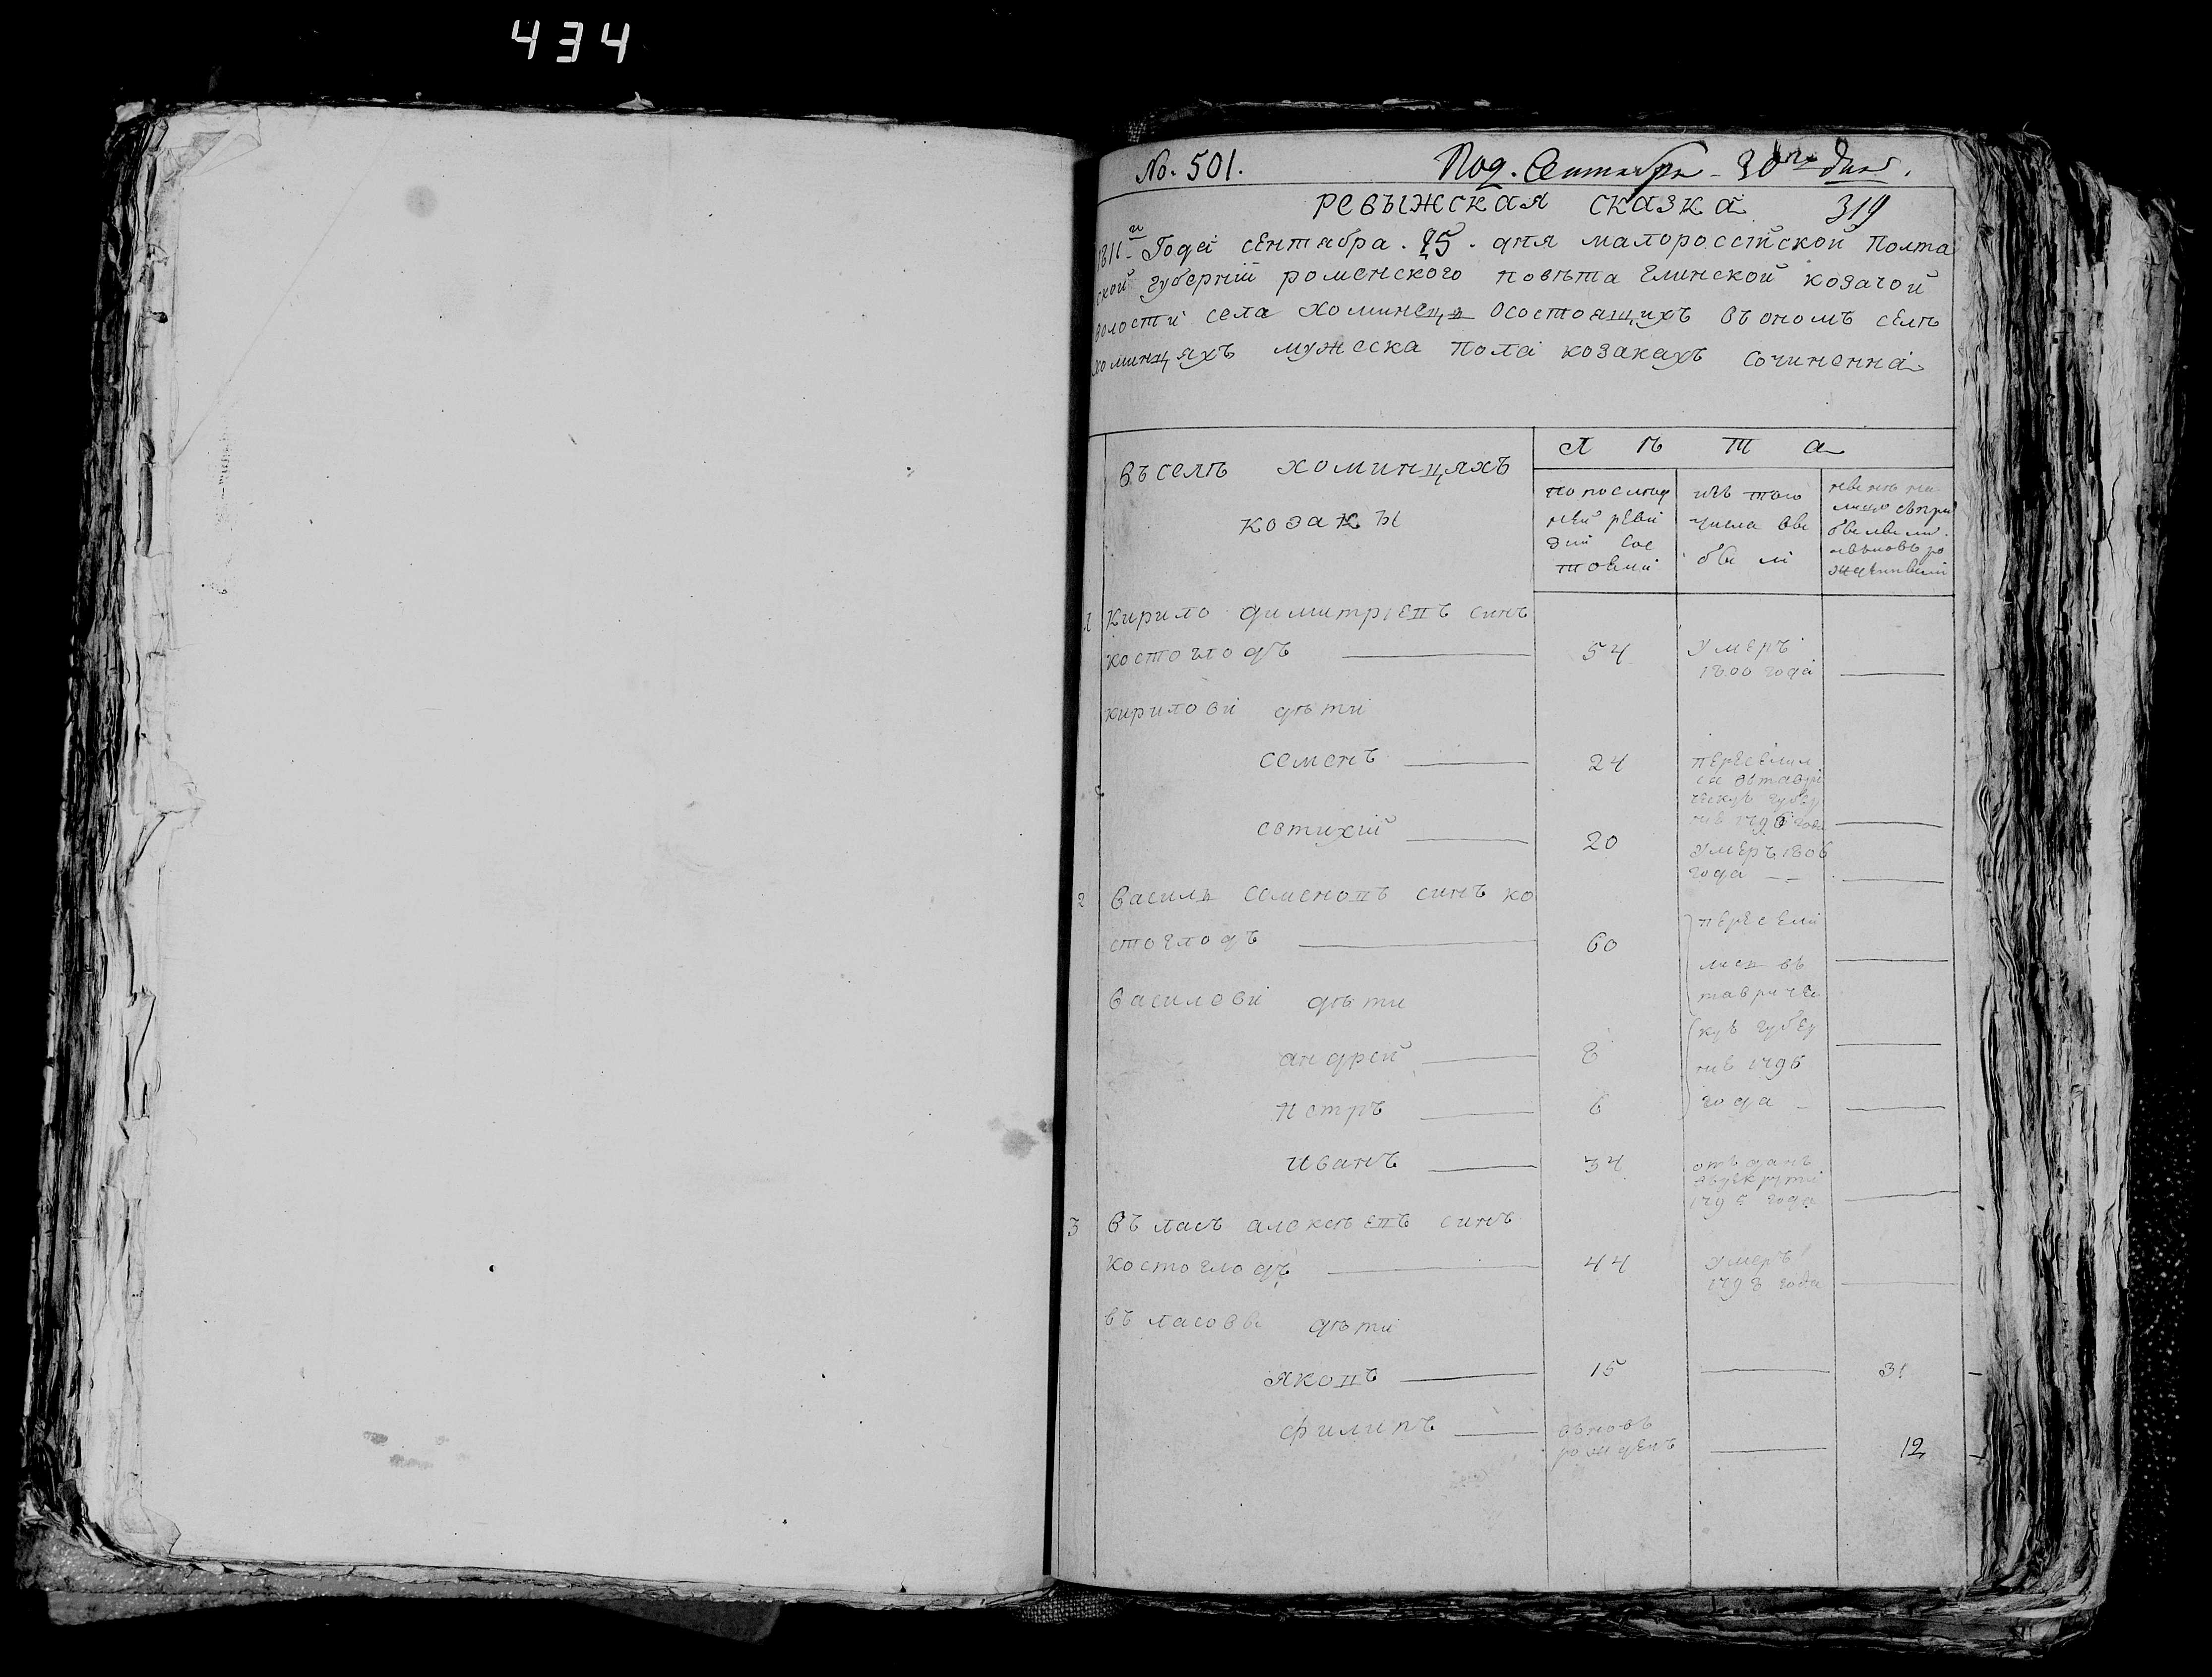 434
No. 501.
Под. Сентября 30го дня.
ревыжская сказка 319
1811го Года сентабра. 25. дня малороссійской Полта
ской губерній роменского повѣта Глинской козачой
волости села хоминець осостоящихъ въ ономъ селѣ
хоминцяхъ мужеска пола козакахъ сочиненна
въ селѣ хоминцяхъ
козакы
л ѣ т а
по послѣд
ней реви
зій сос
тояли
изъ того
числа вы
были
1 Кирило димитріевъ синъ
костоглодъ 54 умеръ
1800 года
кирилові дѣти
семенъ 24 переселил
ся въ таври
ческую губер
нію 1796 года
евтихій 20 умеръ 1806
года
2 василь семеновъ синъ ко
стоглодъ 60 пересели
лись въ
василові дѣти тавричес
андрей 8 кую губер
нію 1795
петръ 6 года
иванъ 34 отъданъ
в рекруты
года
3 въласъ алексѣевъ синъ
костоглодъ 44 умеръ
1793 года
въласовы дѣти
яковъ 15 31
филипъ вьновь
рожденъ 12